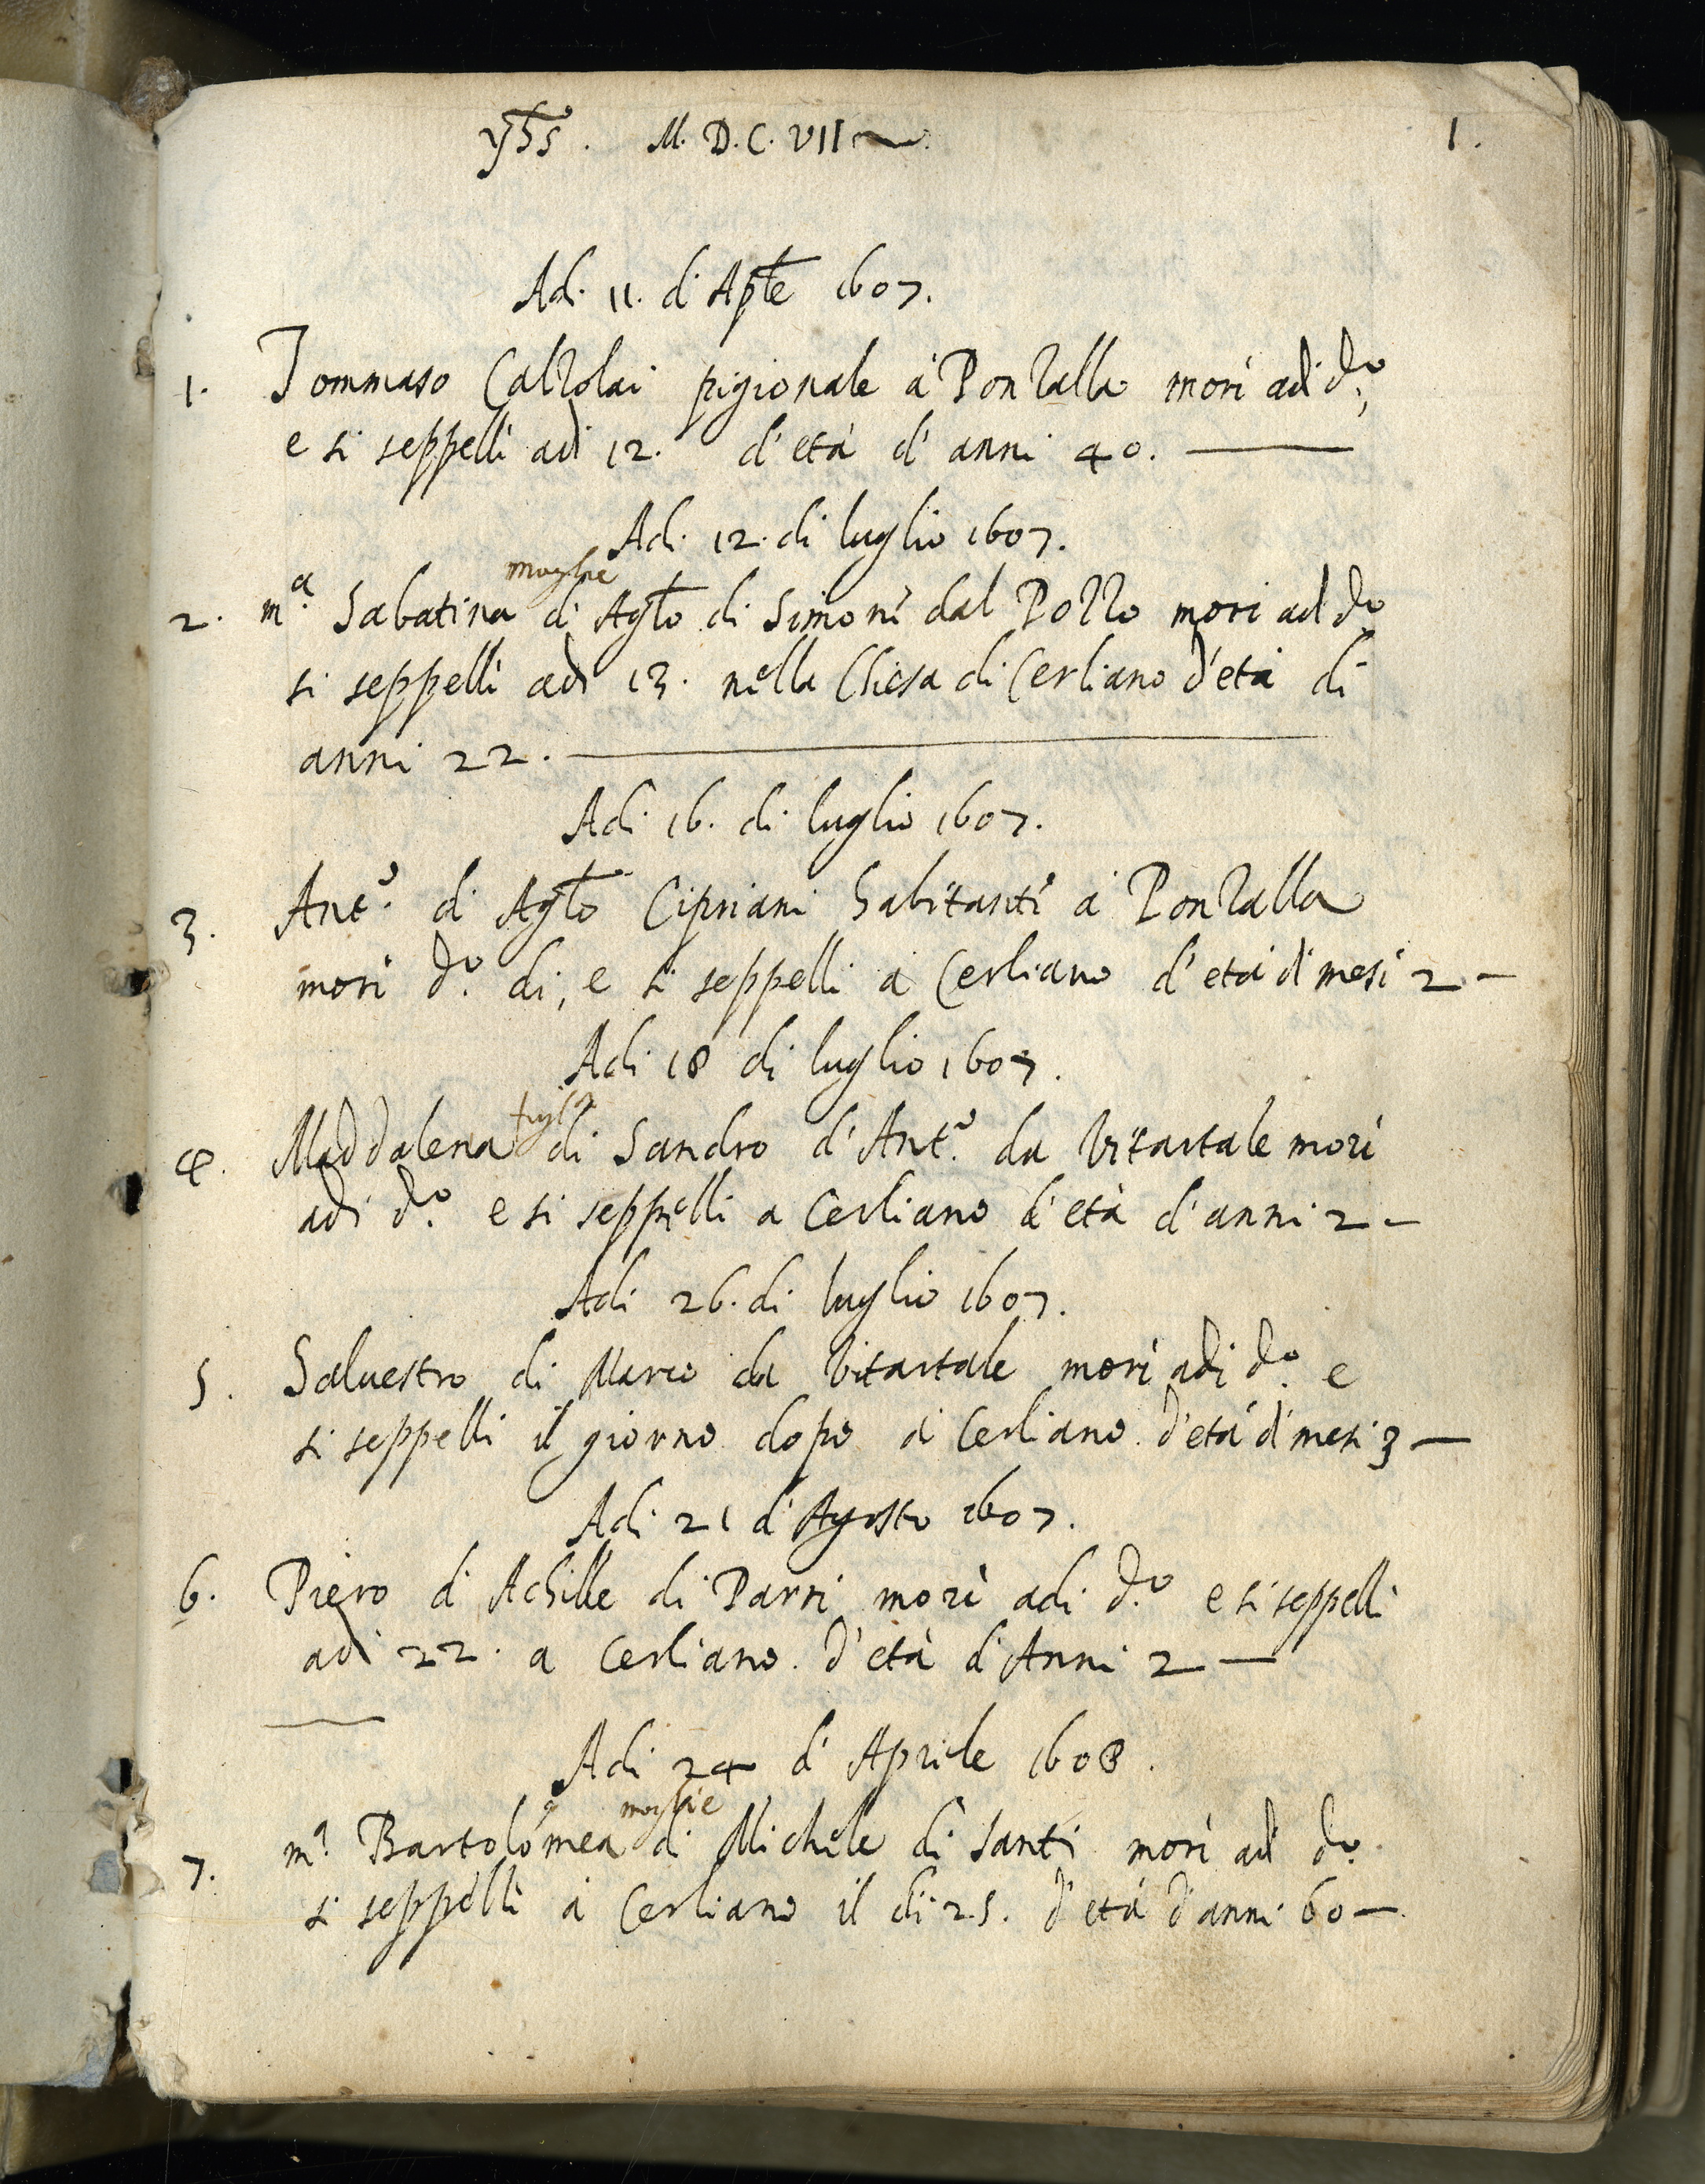 yhs. M.D.C.VII 1.
Adi. 11. di Aple 1607.
1. Tommaso Calzolai pigionale à Ponzalla morì adi do,
e si seppellì adi 12. d'età d'anni 40.
Adi. 12. di luglio 1607.
moglie
2. ma. Sabatina di Agto di Simone dal Pozzo mori adi do
si seppellì adi 13. nella Chiesa di Cerliano d'età di
anni 22.
Adi 16. di luglio 1607.
3. Anto. di Agto Cipriani habitante à Ponzalla
morì do. di, e si seppelli à Cerliano d'età di mesi 2 -
Adi 18 di luglio 1607.
figla
4. Maddalena di Sandro d'Anto. da Vitartale morì
adi do. e si seppelli a Cerliano d'età d'anni 2 -
Adi 26. di luglio 1607.
5. Saluestro di Marco da Vitartale morì adi do. e
si seppelli il giorno dopo à Cerliano. d'età di mesi 3 -
Adi 21 d'Agosto 1607.
6. Piero di Achille di Parri morì adi do. e si seppelli
adi 22. a Cerliano. d'età d'Anni 2 -
Adi 24 d'Aprile 1608.
moglie
7. ma Bartolomea di Michele di Santi morì adi do.
si seppellì à Cerliano il di 25. d'età d'anni 60 -